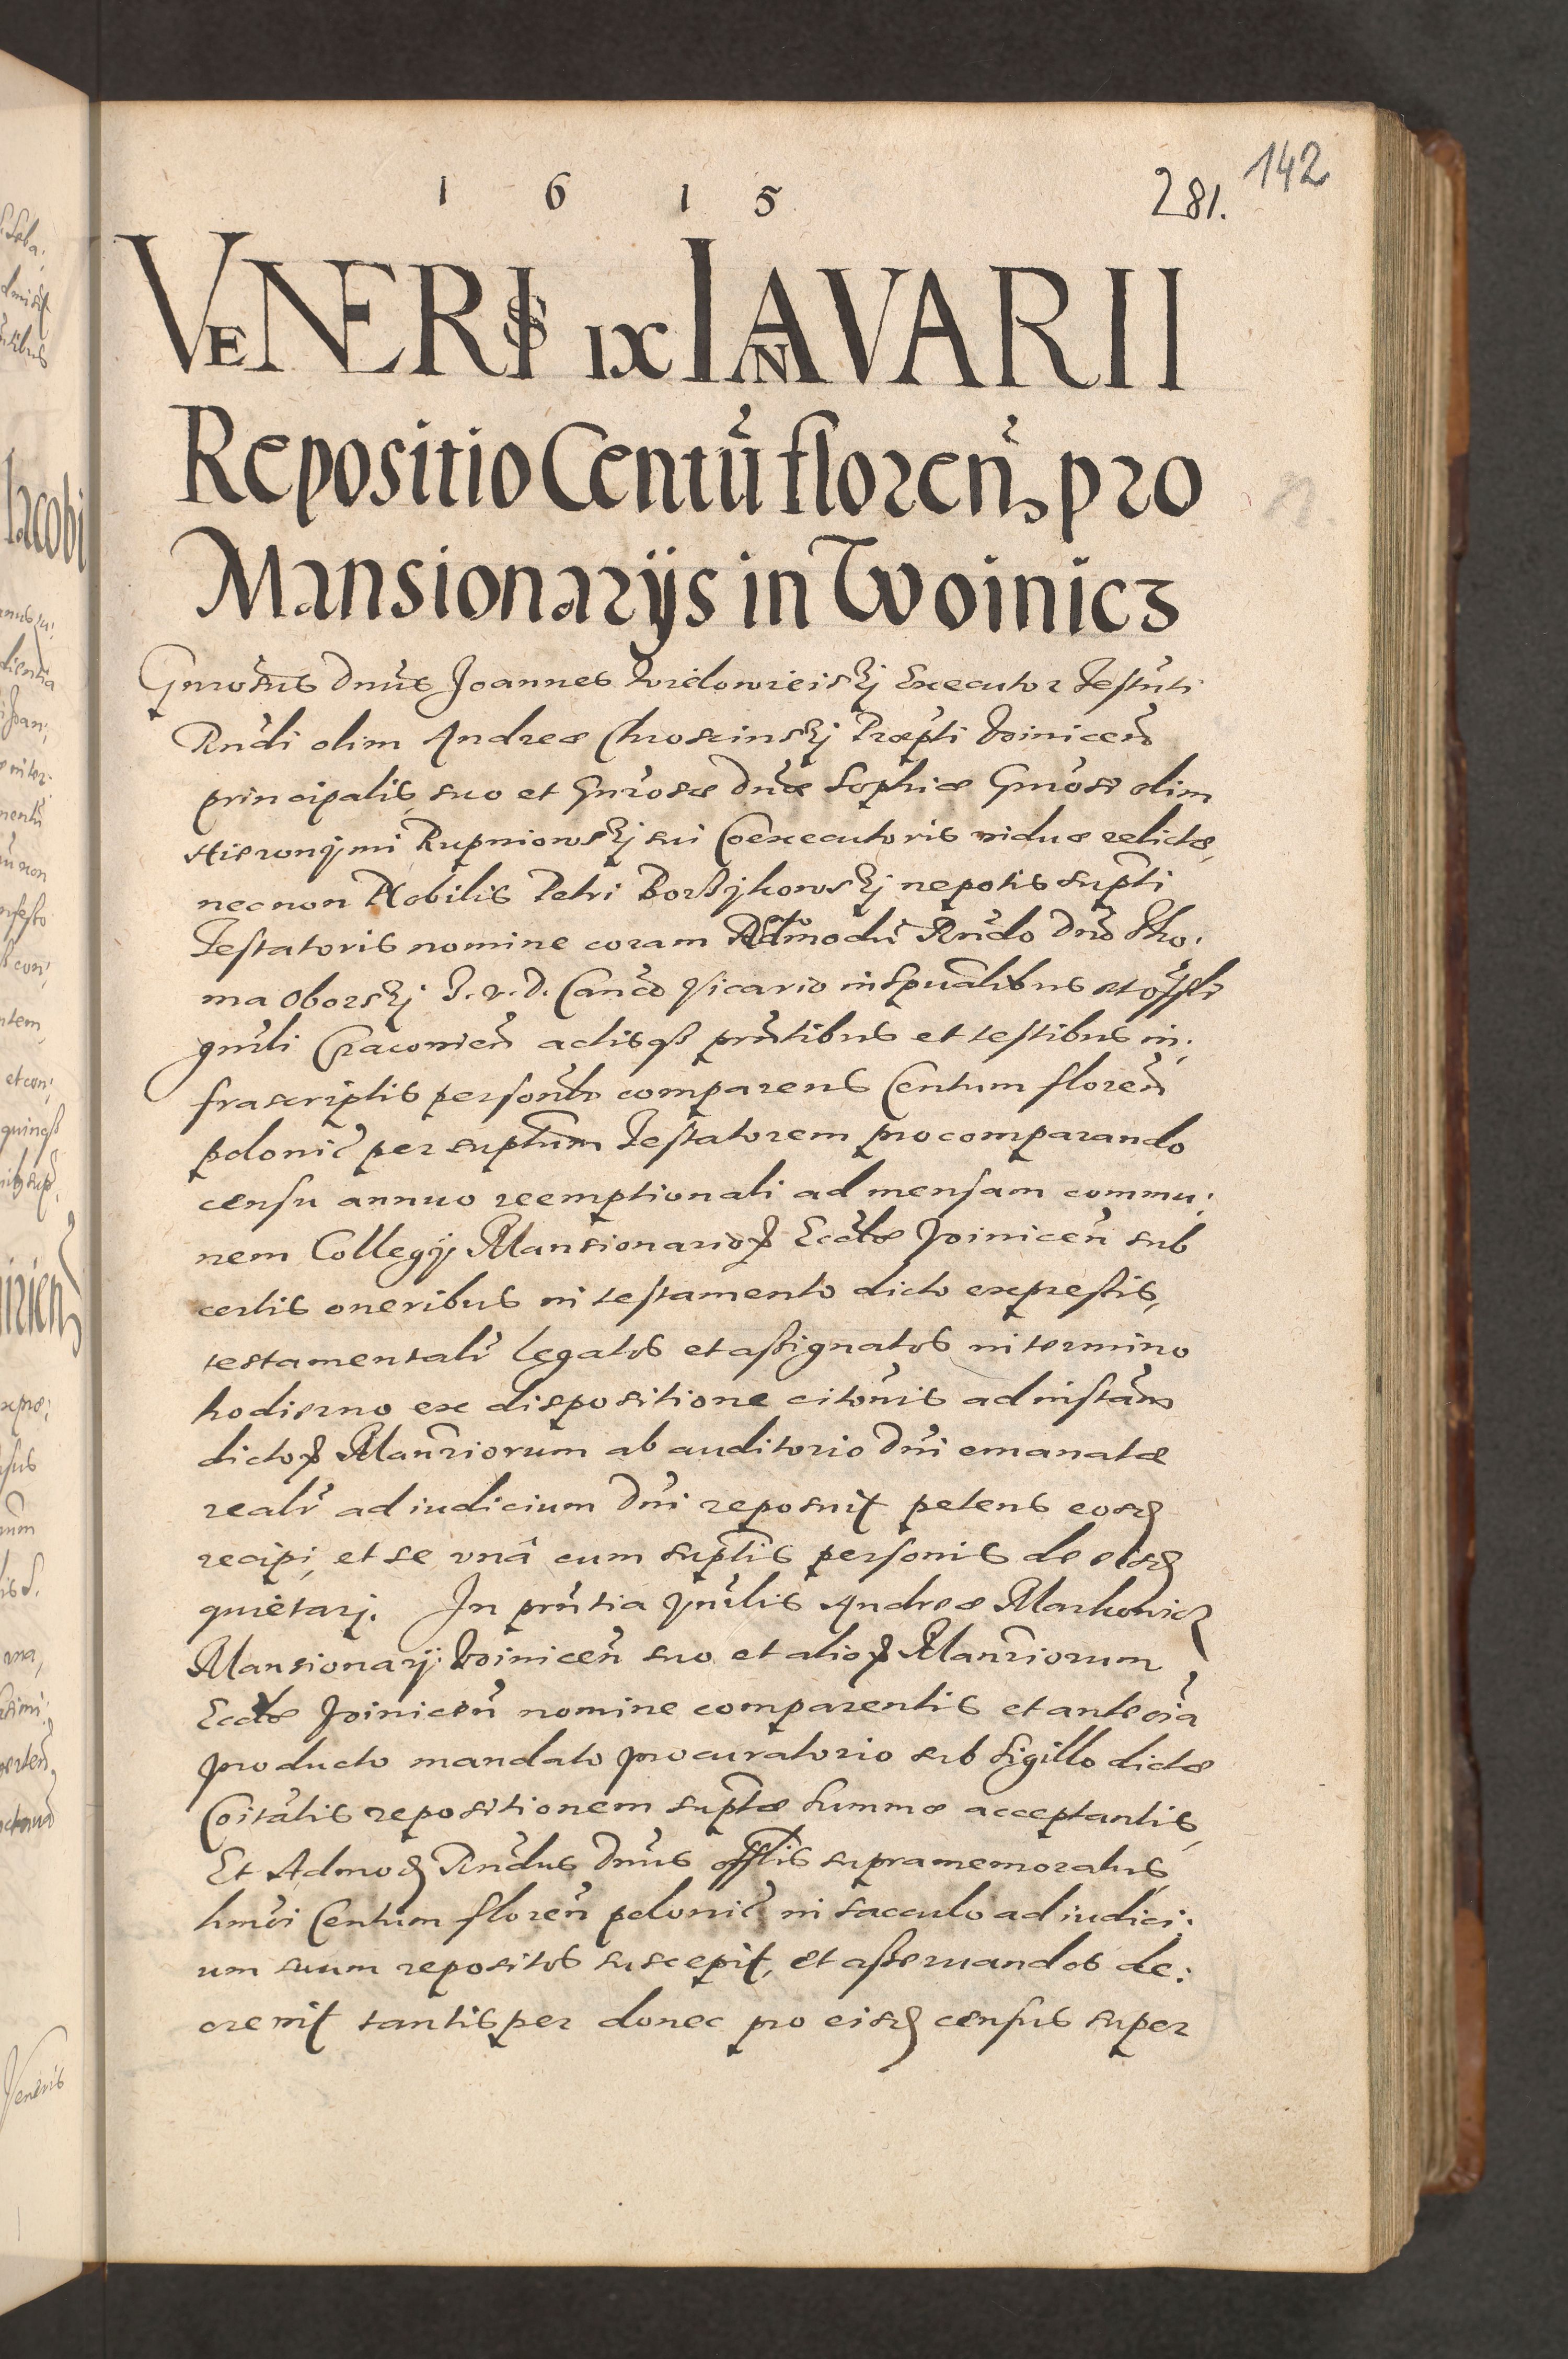 1 6 1 5
281. 142
VENERIS IX IANVARII
Repositio Centũ floreñ pro
Mansionarijs in Woinicz
Gnrosus Dnus Joannes Executor Testnti
Rndi olim Andreæ Chroscinskj Præpti Voinicen
principalis, suo et Gnrosæ Dnæ Sophiæ Gnrosi olim
Hieronymi Rupniowskj sui Coexecutoris viduæ relictæ,
necnon Nobilis Petri nepotis supti
Testatoris nomine coram Admodũ Rndo Dno Tho:
ma Oborskj J. V. D. Canco Vicario in Spualibus et Offli
gnrli Cracovien actisqȝ pntibus et testibus in:
frascriptis personlr comparens Centum floren
polonic per suptum Testatorem pro comparando
censu annuo reemptionali ad mensam commu:
nem Collegij Mansionarioꝝ Ecclæ Voinicen sub
certis oneribus in testamento dicto expressis,
testamentalr legatos et assignatos in termino
hodierno ex dispositione citonis ad instam
dictoꝝ Mansriorum ab auditorio Dni emanatæ
realr ad iudicium Dni reposuit petens eosd
recipi, et se vnâ cum suptis personis de eisd
quietarj. In pntia Hnrlis Andreæ Markowicz
Mansionarij Voinicen suo et alioꝝ Mansriorum
Ecclæ Voinicen nomine comparentis et ante oia
producto mandato procuratorio sub Sigillo dictæ
Coitatis repositionem suptæ Summæ acceptantis,
Et Admod Rndus Dnus Offlis supramemoratus,
hmoi Centum floren polonic in sacculo ad iudici:
um suum repositos suscepit, et asseruandos de:
creuit tantisper donec pro eisd census super